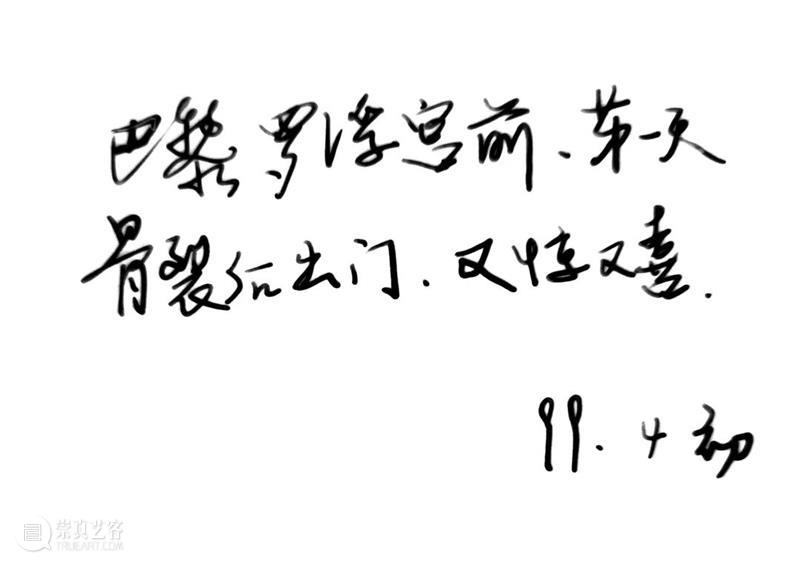 巴黎罗浮宫前、第一天
骨裂后出门.又惊又喜.
99.4初
崇真艺客
TRUEART.COM